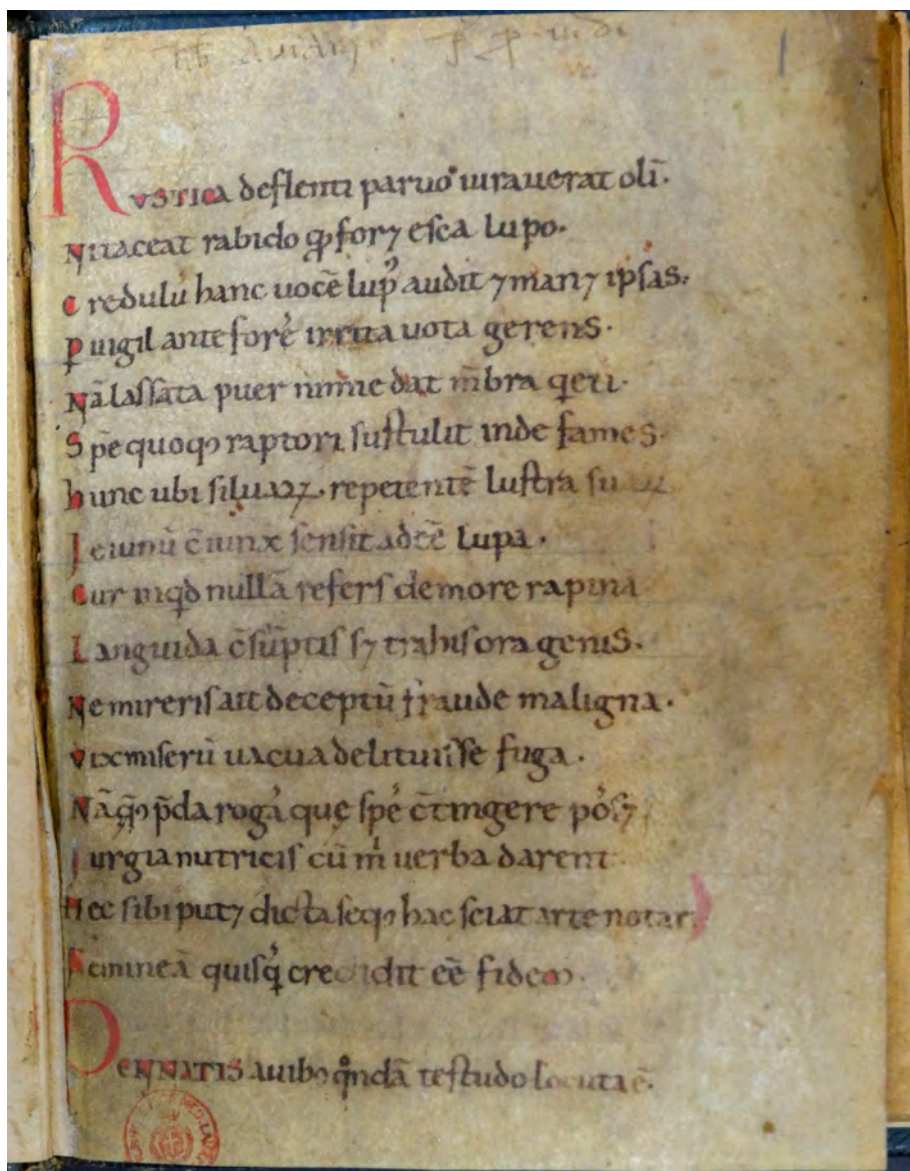 Rustica deflenti paruo iurauerat oli̅.
Ni taceat rabido qꝫ forꝫ esca lupo.
Credulu᷒ hanc uoce̅ lupꝰ audit ⁊ manꝫ ipsas.
Ꝑuigil ante fore᷒ irrita uota gerens.
Na̅ lassata puer nimie dat m̅bra qͥeti.
Spe̅ quoqꝫ raptori sustulit inde fames.
hunc ubi siluaꝝ. repetente̅ lustra suaꝝ
Ieiunu̅ c̅iunx sensit adee̅ lupa.
Cur inqͥd nulla̅ refers de more rapina̅
Languida c̅su̅ptis sꝫ trahis ora genis.
Ne mireris ait deceptu̅ fraude maligna.
Vix miseru̅ uacua delituisse fuga.
Na̅ qꝫ p̅da roga᷒ que spe᷒ c̅tingere po᷒sꝫ
Iurgia nutricis cu̅ m̍ uerba darent
Hec sibi putꝫ dicta seqꝫ hac sciat arte notari
Femineā quisqͥ credidit ee̅ fidem.
PENNATIS auibꝰ qͦnda̅ testudo locuta e̅.